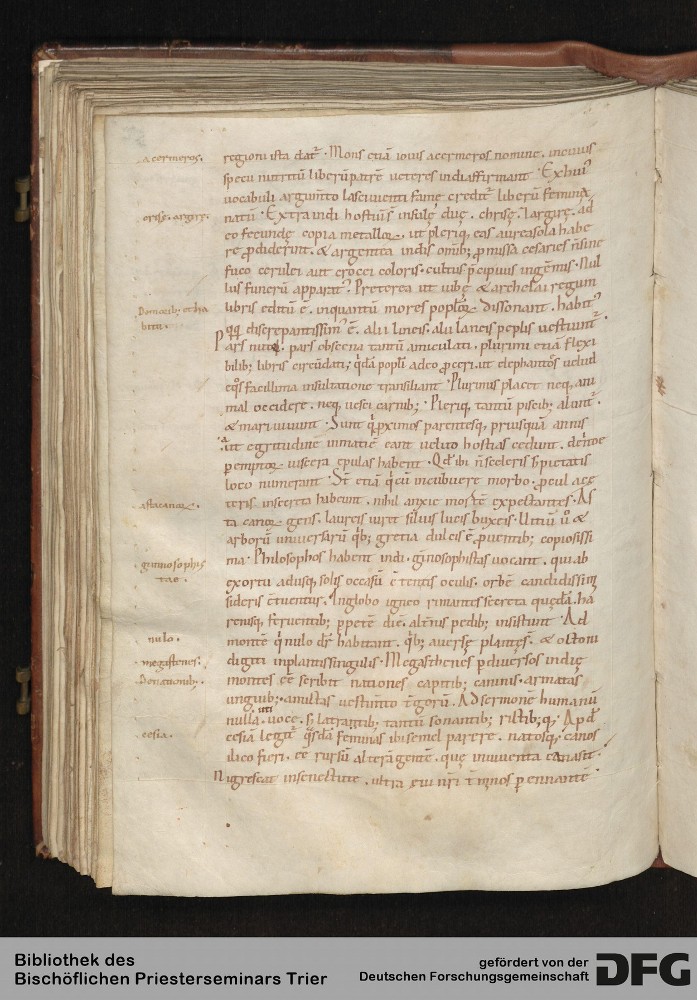 acermeros.
regioni ista datr̃. Mons etiã iovis acermeros nomine. in cuius
specu nutritũ liberũ patrẽ veteres indi affirmant. Ex hui᷒
vocabuli argum̃to lascivienti famę creditr̃ liberũ femine
crisę. argirę.
natũ. Extra indi hostiũ s̃ insulę duę. chrisę. ⁊argirę. ad
eo fecundę copia metalloꝝ. ut pleriq; eas aurea sola habe
re ꝓdiderint. & argentea. indis omib; ꝓmissa cesaries ñ sine
fuco cerulei aut crocei coloris. cultus p̃cipuus in gẽmis. Nul
lus funerũ apparat᷒. Preterea ut iubę & archelai regum
libris editũ ẽ. in quantũ mores poplõꝝ dissonant. habit᷒
q̊q; discrepantissim᷒ ẽ. alii lineis. alii laneis peplis vestiuntr̃
Pars nuda. pars obscena tantũ amiculati. plurimi etiã flexi
bilib; libris circũdati; q̃dã popl̃i adeo ꝓceri ut elephantos velud
eq̊s facillima insultatione transiliant. Plurimis placet neq; ani
mal occidere. neq; vesci carnib;. Pleriq; tantũ piscib; aluntr̃.
& mari vivunt. Sunt q̇ p̃ximos parentesq; priusquã annis
aut egritudine in maciẽ eant velut hostias cedunt. dehinc
peremptoꝝ viscera epulas habent. Qd̃ ibi ñ sceleris s; pietatis
loco numerant. St̃ etiã q̇ cũ incubuere morbo. ꝓcul a cę
astacanoꝝ.
teris in secreta habeunt. nihil anxie mortẽ expectantes. As
tacanoꝝ gens. laureis viret silvis lucis buxeis. Vitiũ v̊ &
arborũ universarũ q̇b; gretia dulcis ẽ ꝓventib; copiosissi
ma. Philosophos habent indi. gĩnosophistas vocant. qui ab
exortu ad usq; solis occasũ cõtentis oculis. orbẽ candidissim̃
sideris cõtuentur. In globo igneo rimantes secreta quędã. ha
renisq; ferventib; p̃petẽ diẽ. alt̃nis pedib; insistunt. Ad
nulo.
montẽ q̇ nulo dr̃ habitant. q̇b; aversę plantę s̃. & octoni
megistenes.
digiti in plantis singulis. Megasthenes p̃ diversos indię
De nationib;
montes ẽẽ scribit nationes capitib; caninis. armatas
unguib;. amictas vestim̃to t̃gorũ. Ad sermonẽ humanũ
nulla voce. s; latratib; tantũ sonantib; rictib;q;. Apd̃
cesiã legitr̃ q̇sdã feminas ibi semel parere. natosq; canos
ilico fieri. ẽẽ rursũ alterã gentẽ. quę in iuventa cana sit.
Nigrescat in senectute. ultra ęvi nr̃i t̃minos p̃ennantẽ
Bibliothek des
Bischöflichen Priesterseminars Trier
gefördert von der
Deutschen Forschungsgemeinschaft
DFG